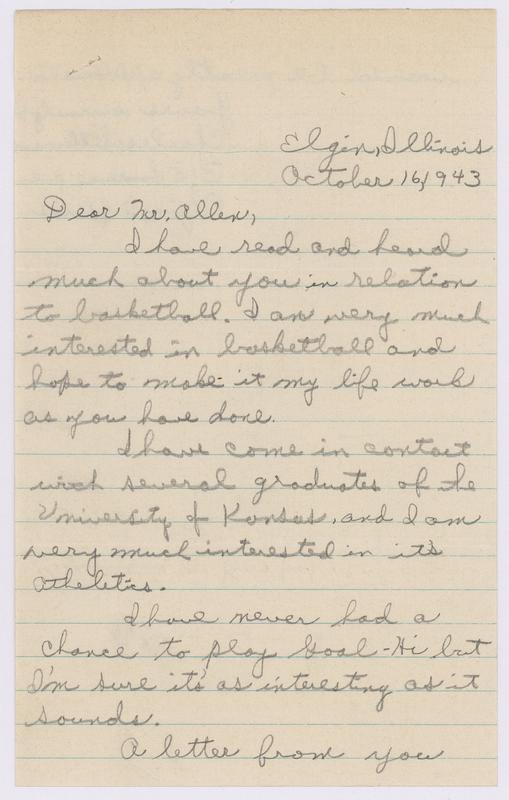 Elgin, Illinois
October 16, 1943
Dear Mr. Allen,
I have read and heard
much about you in relation
to basketball. I am very much
interested in basketball and
hope to make it my life work
as you have done.
I have come in contact
with several graduates of the
University of Kansas, and I am
very much interested in it's
atheletics.
I have never had a
chance to play Goal-Hi but
I'm sure it's as interesting as it
sounds.
A letter from you